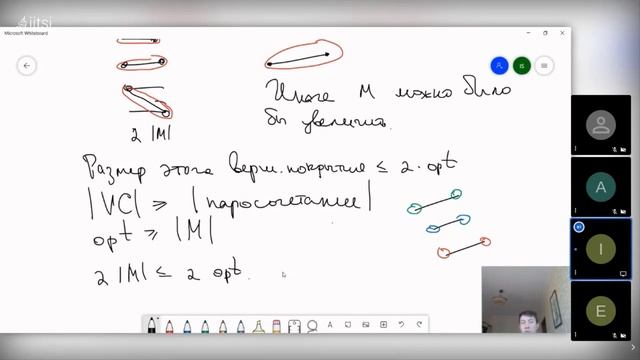 iitsi
Microsoft Whiteboard
2 |M|
Иначе M можно было
бы увеличить.
Размер этого верш. покрытия ≤ 2·opt
|VC| ≥ |паросочетание|
opt ≥ |M|
2 |M| ≤ 2 opt.
IS
A
I
E